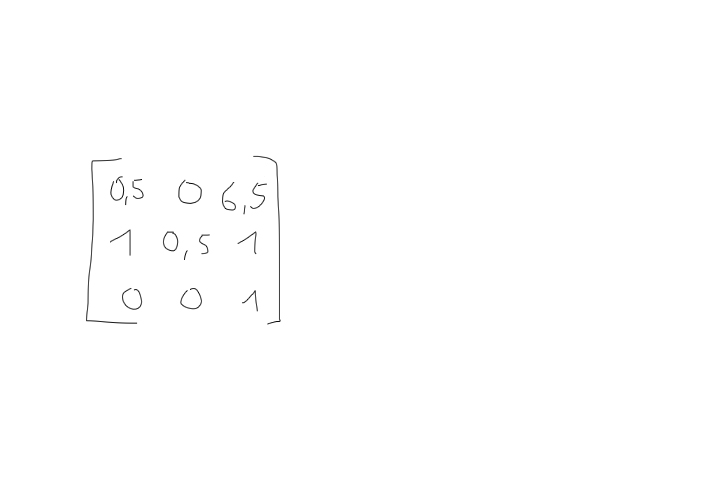 0,5 0 6,5
1 0,5 1
0 0 1